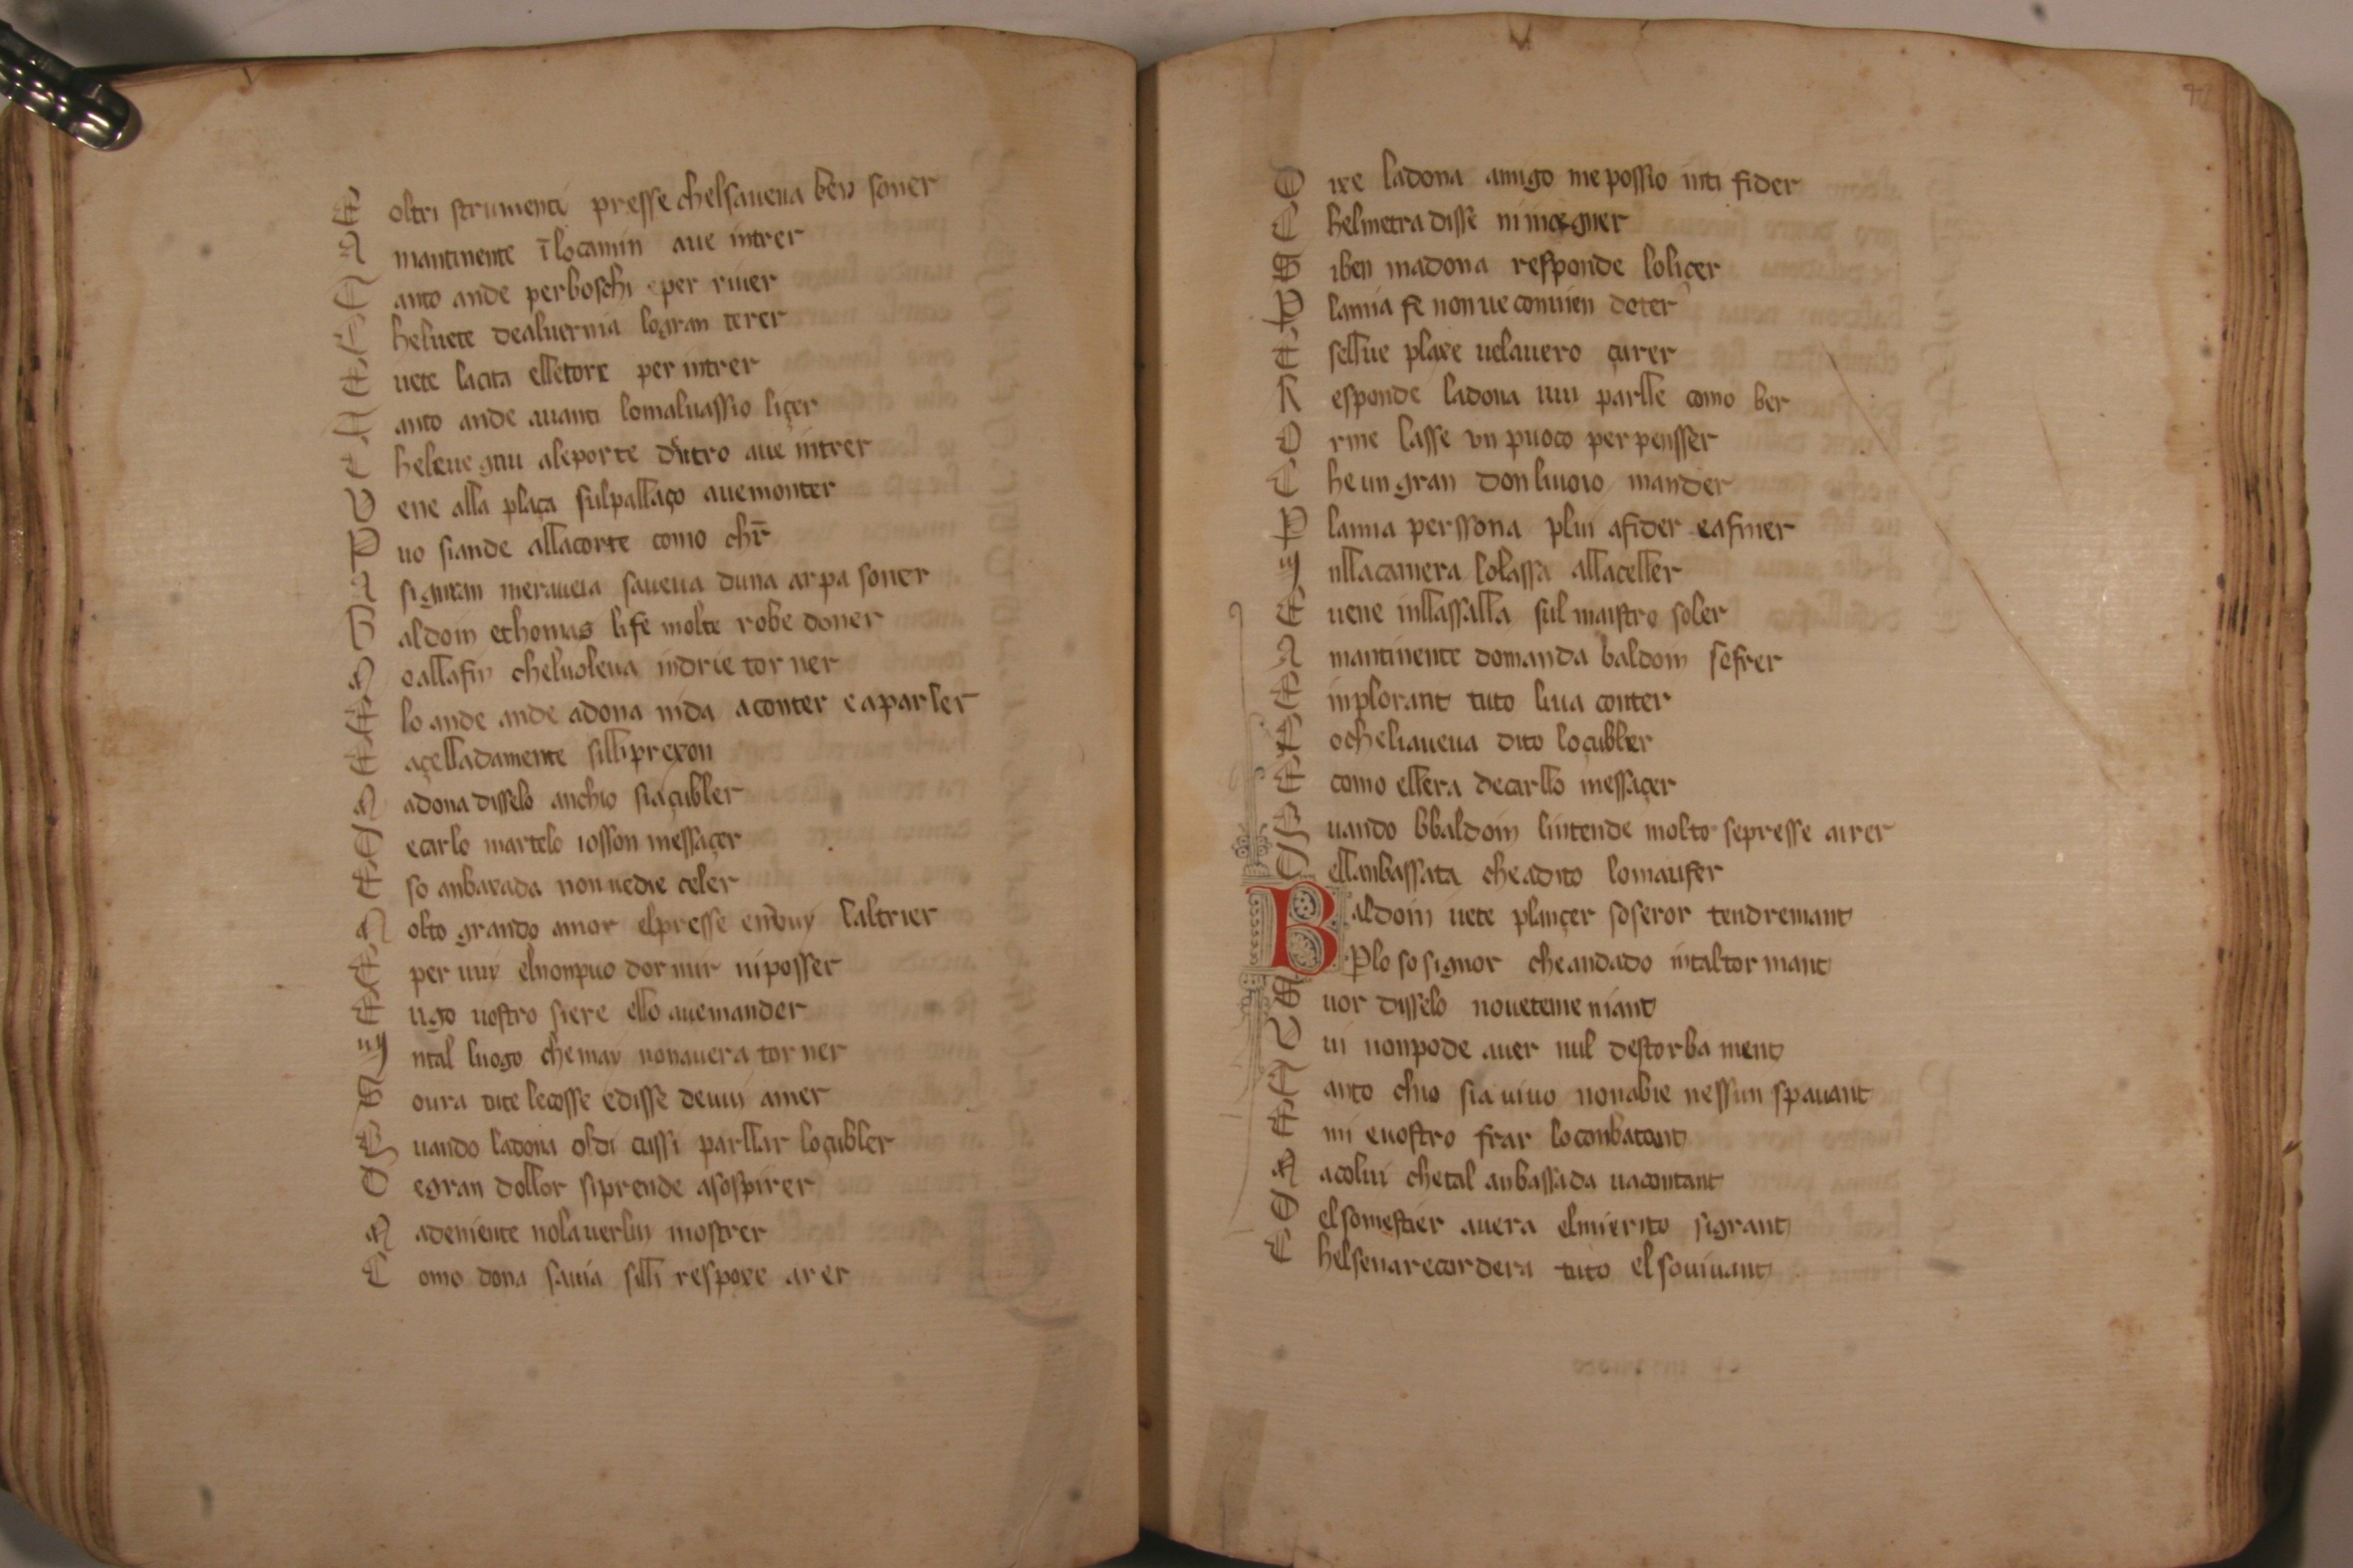 E oltri strumenti presse chelsaueua ben soner
A mantinente ī locamin aue intrer
T anto ande perboschi eper riuer
C heluete dealuernia logran terer
E uete lacita elletore per intrer
T anto ande auanti lomaluassio liçer
C heleue gnu aleporte dentro aue intrer
V ene alla plaça sulpallaço auemonter
P uo siande allacorte como chr̄
A signtan meraueia saueua duna arpa soner
B aldoin ethomas life molte robe doner
M aallafin cheluoleua indrie torner
E lo ande ande adona inda aconter eaparler
E açelladamente silliprexon
M adona disselo anchio siaçubler
D ecarlo martelo iosson messaçer
E so anbaxada nonuedie celer
M olto grando amor elpresse enuuy laltrier
E per uuy elnonpuo dormir niposser
E ugo uostro siere ello auemander
IN ntal luogo chemay nonauera torner
S oura dite lecosse edisse deuui amer
Q uando ladona oldi cussi parllar loçubler
D egran dollor siprende asospirer
M adeniente nolauerlui mostrer
C omo dona sauia silli respoxe arer
D ixe ladona amigo mepossio inti fider
C helmetradisse ni in gner
S iben madona responde loliçer
P lamia fe nonue conuien doter
E sellue plaxe uelauero çurer
R esponde ladona uui parlle como ber
O rme lasse vn puoco per pensser
C he un gran don liuoio mander
P lamia perssona plui afider eafiner
IN nllacamera lolassa allaceller
E uene inllassalla sul maistro soler
A mantinente domanda baldoin sofrer
E inplorant tuto liua conter
C ocheliaueua dito loçubler
E como ellera decarllo messaçer
Q uando bbaldoin lintende molto sepresse airer
D ellanbassata cheadito lomaufer
B aldoin uete plançer soseror tendremant
P lo so signor cheandado intaltormant
S uor disselo noueteme niant
V ui nonpode auer nul destorbament
T anto chio sia viuo nonabie nessun spauant
E mi euostro frar locombatant
M acolui chetal anbassada uacontant
D elsomestier auera elmierito sigrant
C helsenarecordera tuto elsouiuant